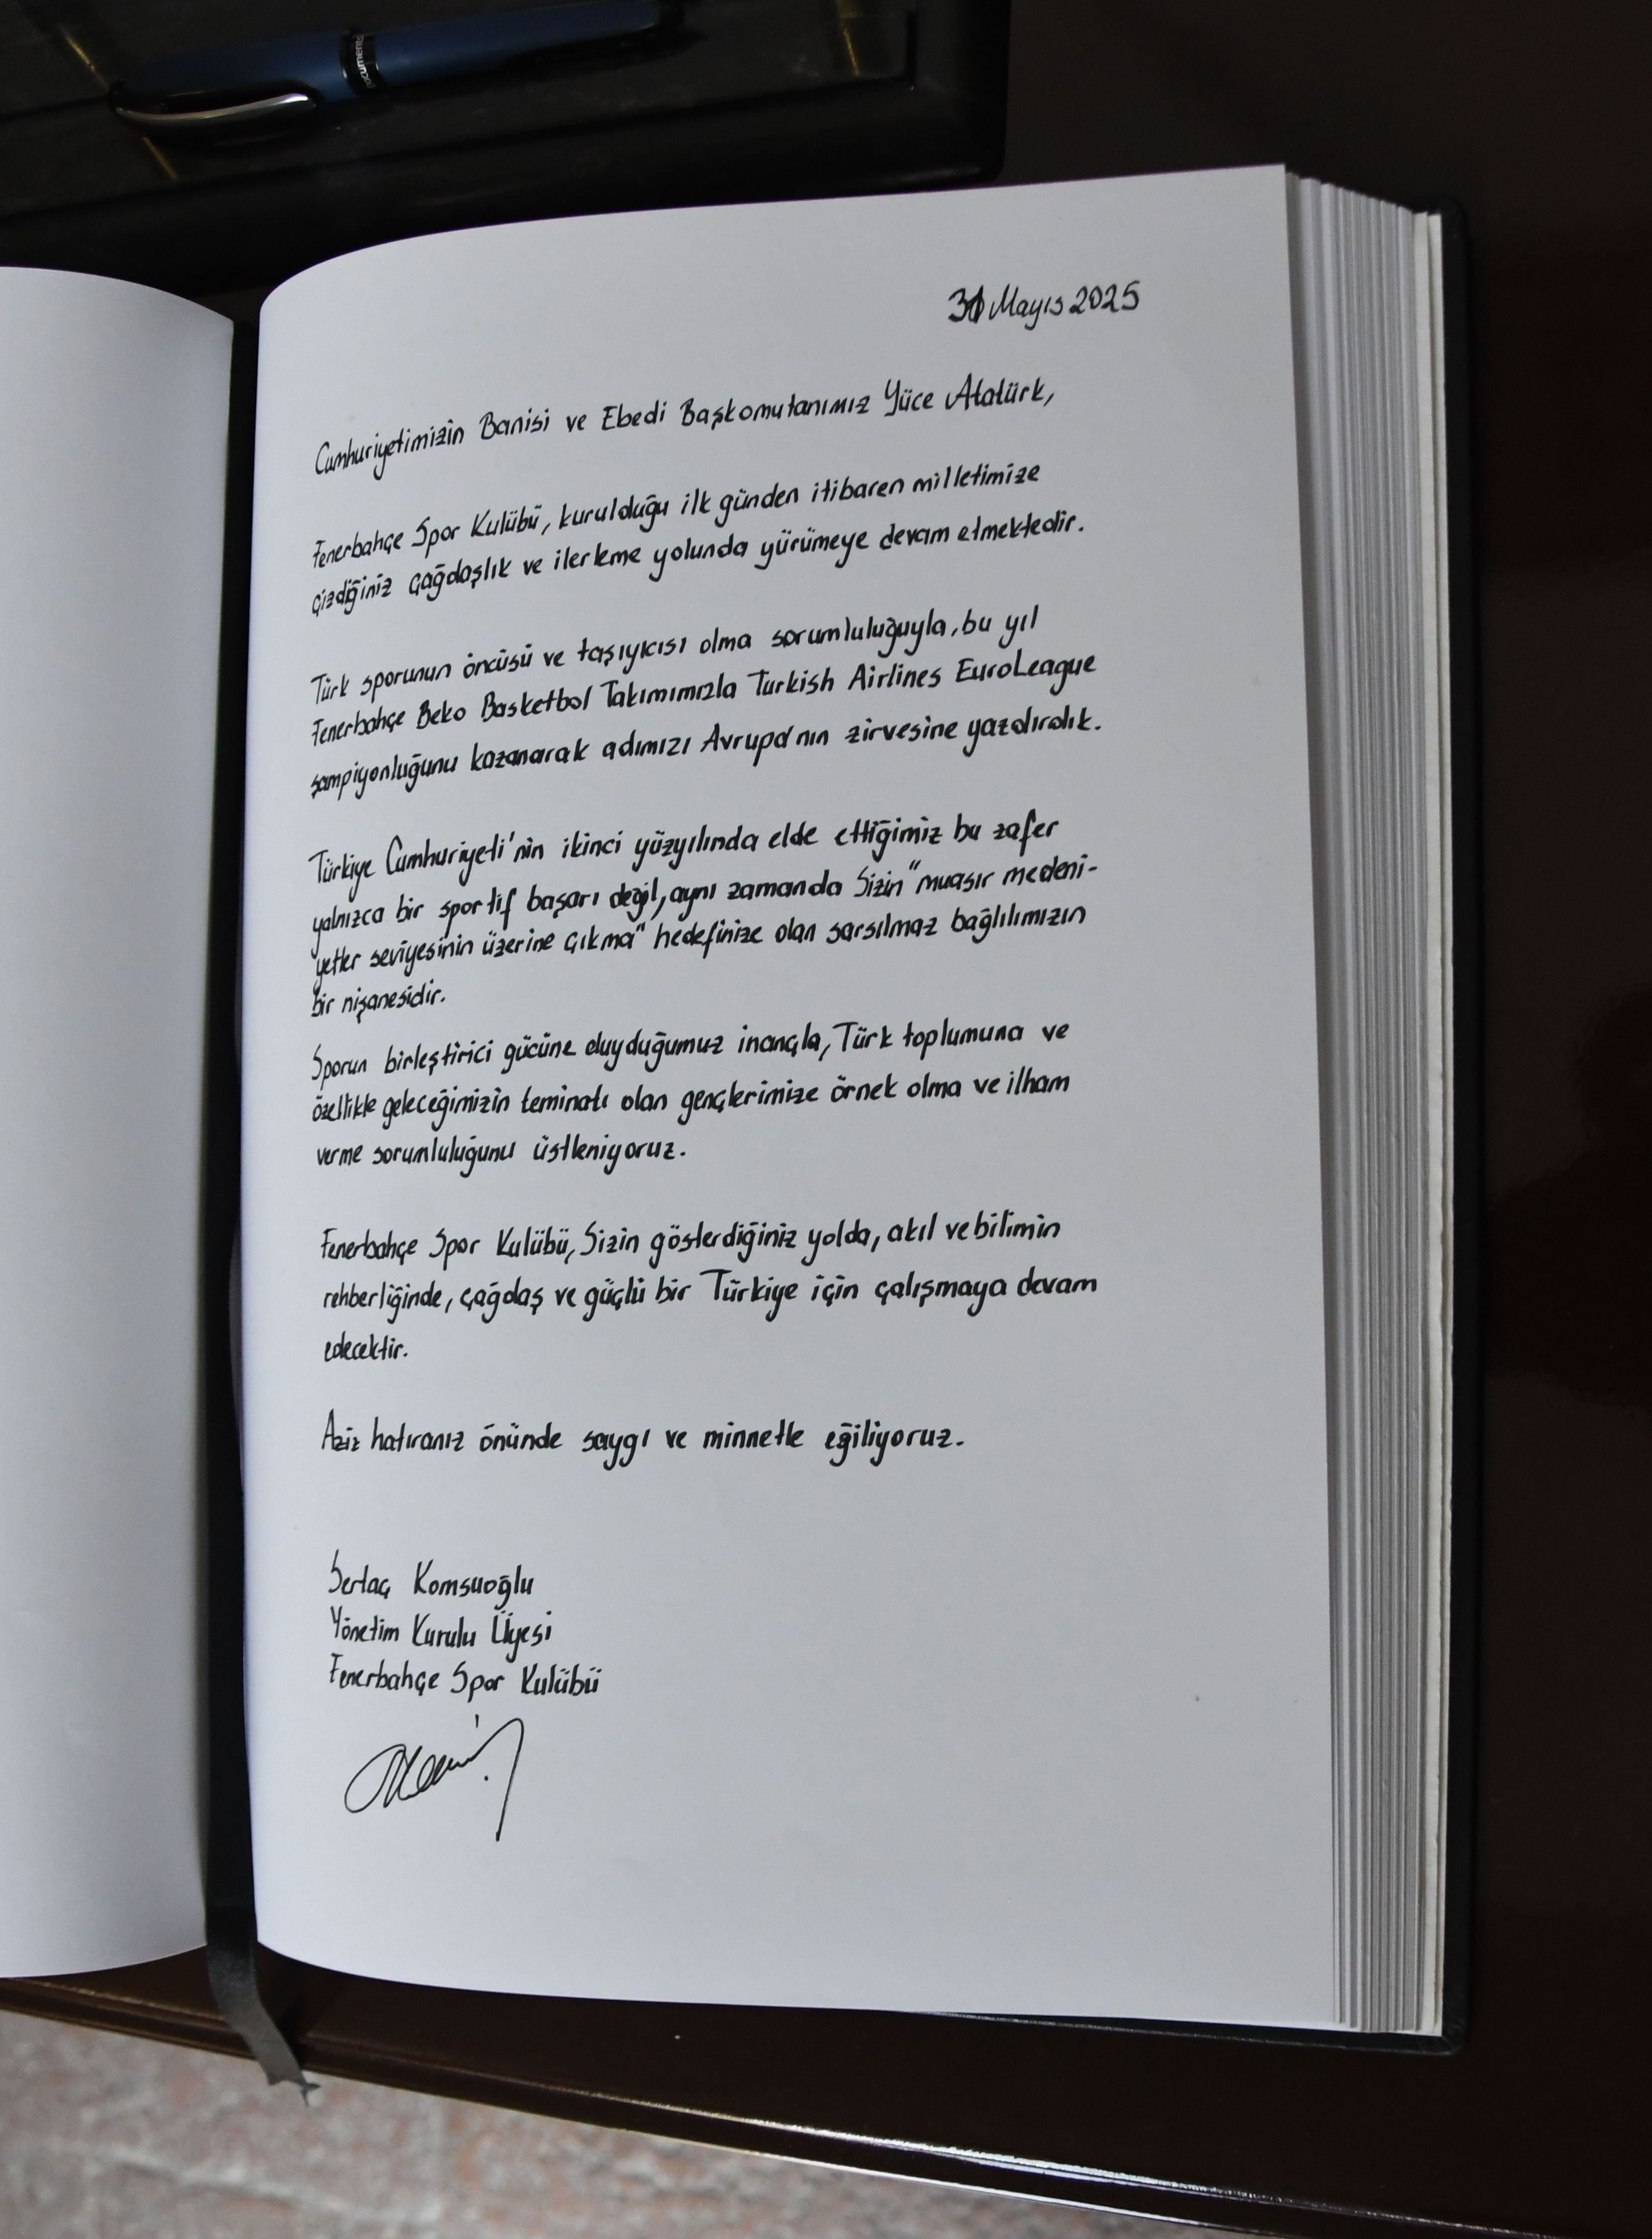 Document
31 Mayıs 2025
Cumhuriyetimizin Banisi ve Ebedi Başkomutanımız Yüce Atatürk,
Fenerbahçe Spor Kulübü, kurulduğu ilk günden itibaren milletimize
çizdiğiniz çağdaşlık ve ilerleme yolunda yürümeye devam etmektedir.
Türk sporunun öncüsü ve taşıyıcısı olma sorumluluğuyla, bu yıl
Fenerbahçe Beko Basketbol Takımımızla Turkish Airlines EuroLeague
şampiyonluğunu kazanarak adımızı Avrupa'nın zirvesine yazdırdık.
Türkiye Cumhuriyeti'nin ikinci yüzyılında elde ettiğimiz bu zafer
yalnızca bir sportif başarı değil, aynı zamanda Sizin "muasır medeni-
yetler seviyesinin üzerine çıkma" hedefinize olan sarsılmaz bağlılımızın
bir nişanesidir.
Sporun birleştirici gücüne duyduğumuz inançla, Türk toplumuna ve
özellikle geleceğimizin teminatı olan gençlerimize örnek olma ve ilham
verme sorumluluğunu üstleniyoruz.
Fenerbahçe Spor Kulübü, Sizin gösterdiğiniz yolda, akıl ve bilimin
rehberliğinde, çağdaş ve güçlü bir Türkiye için çalışmaya devam
edecektir.
Aziz hatıranız önünde saygı ve minnetle eğiliyoruz.
Sertaç Komsuoğlu
Yönetim Kurulu Üyesi
Fenerbahçe Spor Kulübü